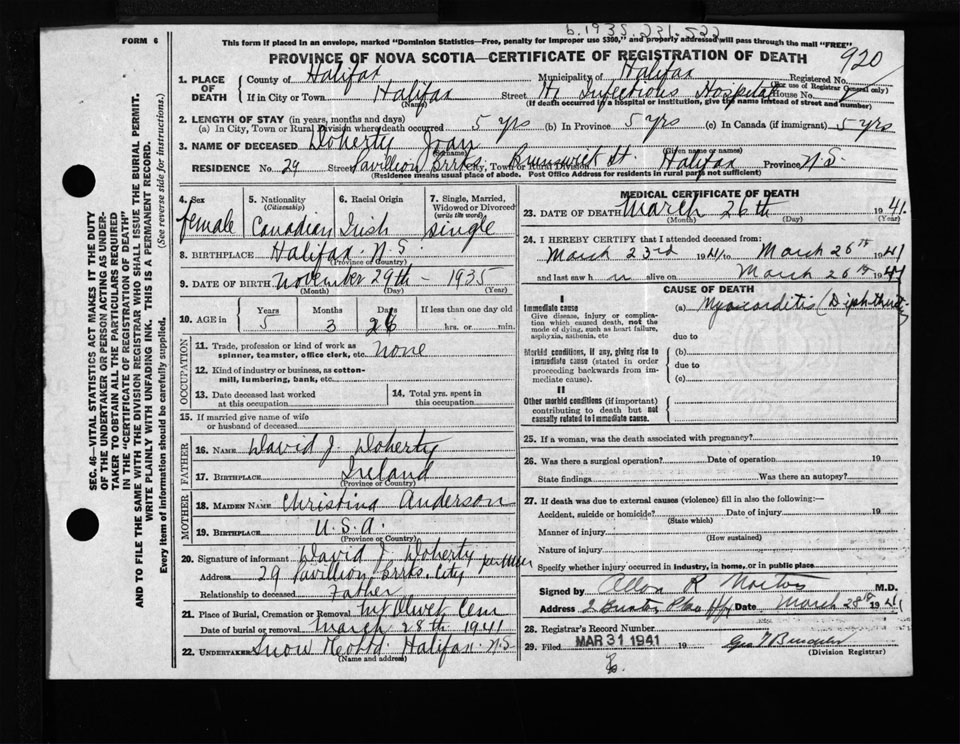 b. 1935
FORM 6
This form if placed in an envelope, marked "Dominion Statistics—Free, penalty for improper use $300," and properly addressed will pass through the mail "FREE"
PROVINCE OF NOVA SCOTIA—CERTIFICATE OF REGISTRATION OF DEATH
920
1. PLACE OF DEATH
County of Halifax Municipality of Halifax Registered No.
(For use of Registrar General only)
If in City or Town Halifax Street Infectious Hospital House No.
(Name) (If death occurred in a hospital or institution, give the name instead of street and number)
2. LENGTH OF STAY (in years, months and days)
(a) In City, Town or Rural Division where death occurred 5 yrs (b) In Province 5 yrs (c) In Canada (if immigrant) 5 yrs
3. NAME OF DECEASED Doherty Joan
(Surname) (Given name or names)
RESIDENCE No. 29 Street Pavillion Brrks. Brunswick St. Halifax Province N.S.
(Residence means usual place of abode. Post Office Address for residents in rural parts not sufficient)
4. Sex female
5. Nationality (Citizenship) Canadian
6. Racial Origin Irish
7. Single, Married, Widowed or Divorced (write the word) single
8. BIRTHPLACE Halifax N.S.
(Province or Country)
9. DATE OF BIRTH November 29th - 1935
(Month) (Day) (Year)
10. AGE in Years 5 Months 3 Days 26 If less than one day old hrs. or min.
OCCUPATION
11. Trade, profession or kind of work as spinner, teamster, office clerk, etc. none
12. Kind of industry or business, as cotton-mill, lumbering, bank, etc.
13. Date deceased last worked at this occupation
14. Total yrs. spent in this occupation
15. If married give name of wife or husband of deceased
FATHER
16. NAME David J. Doherty
17. BIRTHPLACE Ireland
(Province or Country)
MOTHER
18. MAIDEN NAME Christina Anderson
19. BIRTHPLACE U.S.A.
(Province or Country)
20. Signature of informant David J. Doherty
Address 29 Pavillion Brrks. City
Relationship to deceased Father
21. Place of Burial, Cremation or Removal Mt Olivet Cem
Date of burial or removal March 28th 1941
22. UNDERTAKER Snow Halifax N.S
(Name and address)
MEDICAL CERTIFICATE OF DEATH
23. DATE OF DEATH March 26th 1941
(Month) (Day) (Year)
24. I HEREBY CERTIFY that I attended deceased from:
March 23rd 1941 to March 26th 1941
and last saw h alive on March 26th 1941
CAUSE OF DEATH
I
Immediate cause
Give disease, injury or complication which caused death, not the mode of dying, such as heart failure, asphyxia, asthenia, etc
(a) Myocarditis (Diphtheritic)
due to
Morbid conditions, if any, giving rise to immediate cause (stated in order proceeding backwards from immediate cause).
(b)
due to
(c)
II
Other morbid conditions (if important) contributing to death but not causally related to immediate cause.
25. If a woman, was the death associated with pregnancy?
26. Was there a surgical operation? Date of operation 19
State findings Was there an autopsy?
27. If death was due to external causes (violence) fill in also the following:—
Accident, suicide or homicide? Date of injury 19
(State which)
Manner of injury
(How sustained)
Nature of injury
Specify whether injury occurred in industry, in home, or in public place
Signed by Allan R Morton M.D.
Address Date March 28th 1941
28. Registrar's Record Number
29. Filed MAR 31 1941 19
(Division Registrar)
SEC. 46—VITAL STATISTICS ACT MAKES IT THE DUTY
OF THE UNDERTAKER OR PERSON ACTING AS UNDERTAKER
TO OBTAIN ALL THE PARTICULARS REQUIRED
IN THE "CERTIFICATE OF REGISTRATION OF DEATH"
AND TO FILE THE SAME WITH THE DIVISION REGISTRAR WHO SHALL ISSUE THE BURIAL PERMIT.
WRITE PLAINLY WITH UNFADING INK. THIS IS A PERMANENT RECORD.
Every item of information should be carefully supplied. (See reverse side for instructions.)